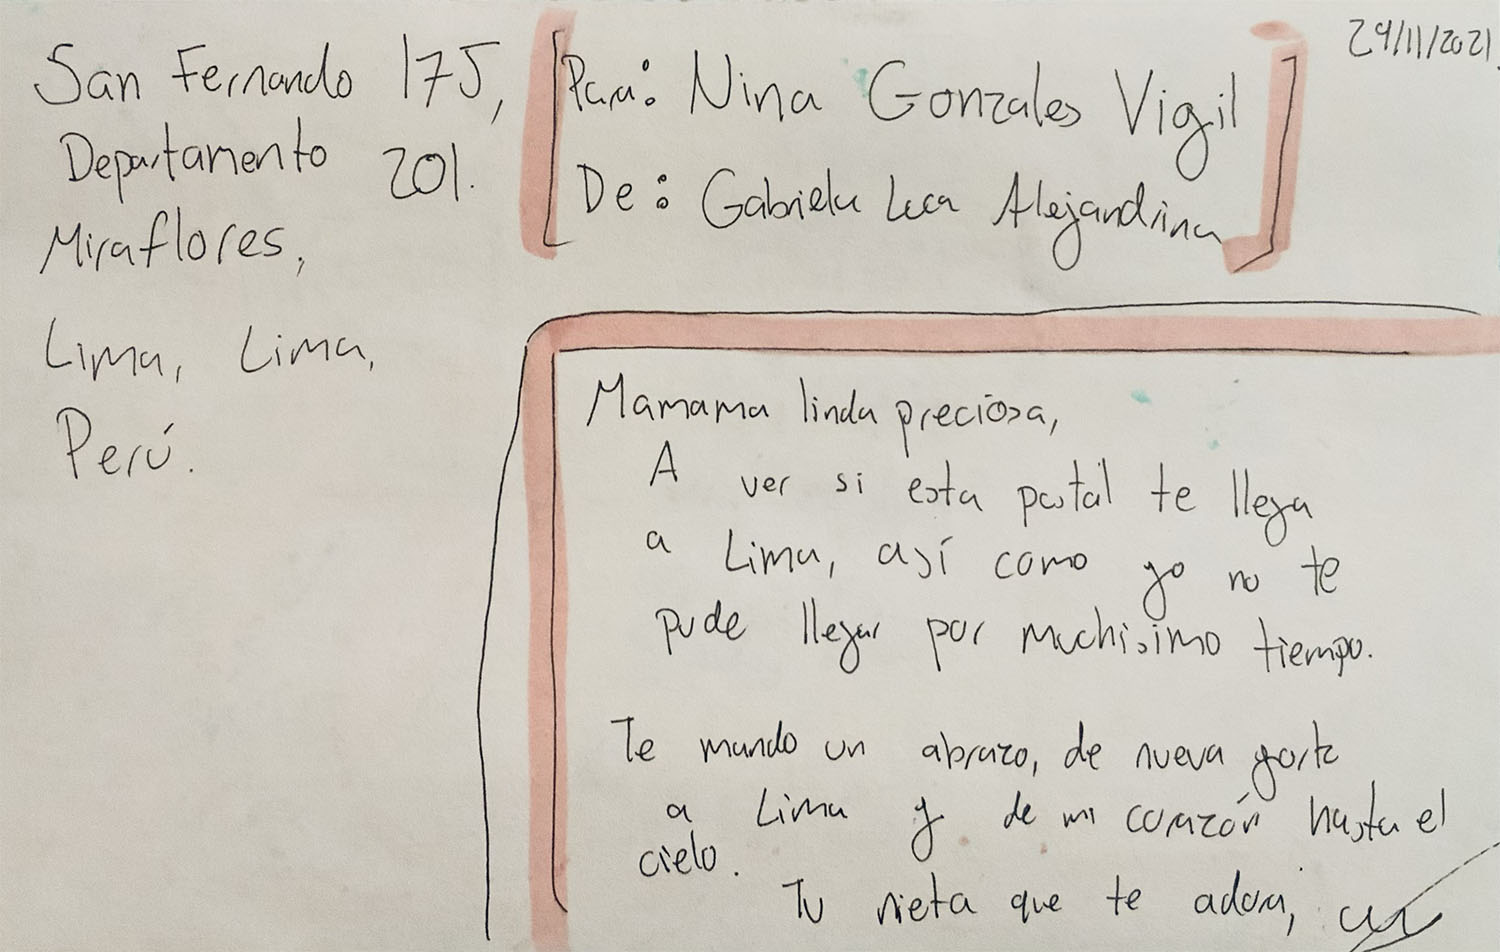 29/11/2021.
San Fernando 175,
Departamento 201.
Miraflores,
Lima, Lima,
Perú.
Para: Nina Gonzales Vigil
De: Gabriela Luca Alejandrina
Mamama linda preciosa,
A ver si esta postal te llega
a Lima, así como yo no te
pude llegar por muchisimo tiempo.
Te mando un abrazo, de nueva york
a Lima y de mi corazón hasta el
cielo.
Tu nieta que te adora,